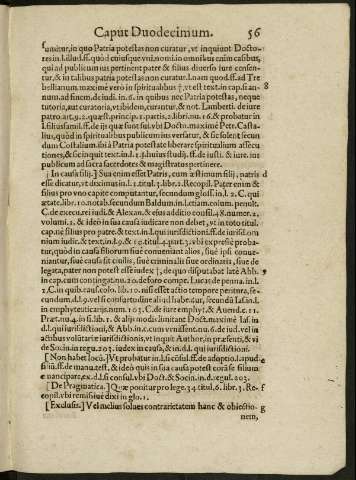 Caput Duodecimum. 56
sumitur, in quo Patria potestas non curatur, vt inquiunt Docto-
res in l. illud. ff. quòd cuiusque vni. nomi. in omnibus enim casibus,
qui ad publicum ius pertinent pater & filius diuerso iure censen-
tur, & in talibus patria potestas non curatur. l. nam quod. ff. ad Tre
bellianum. maximè verò in spiritualibus †, vt est text. in cap. si an- 8
num. ad finem. de iudi. in 6. in quibus nec Patria potestas, neque
tutoria, aut curatoria, vt ibidem, curantur, & not. Lamberti. de iure
patro. art. 9. 2. quæst. princip. 1. partis, 2. libri, nu. 16. & probatur in
l. filiusfamil. ff. de ijs quæ sunt sui. vbi Docto. maximè Petr. Casta-
lius, quòd in spiritualibus publicum ius versatur, & sic solent secun
dum Costalium. ibi à Patria potestate liberare spiritualium assecu
tiones, & sic inquit text. in l. 1. huius studij. ff. de iusti. & iure. ius
publicum ad sacra sacerdotes & magistratus pertinere.
¶ In causa filij.] Sua enim esset Patris, cum æstimum filij, patris
esse dicatur, vt dicimus in l. 1. titul. 7. libr. 1. Recopil. Pater enim &
filius pro vno capite computantur, secundum gloss. in l. 2. C. qui
ætate. libr. 10. notab. secundum Baldum. in l. etiam colum. penult.
C. de execu. rei iudi. & Alexan. & eius additio consil. 48. numer. 2.
volum. 2. & ideò in sua causa iudicare non debet, vt in toto titul.
cap. nè filius pro patre. & text. in l. qui iurisdictioni. ff. de iurisd. om
nium iudic. & text. in l. 9. & 10. titul. 4. part. 3. vbi expressè proba-
tur, quòd in causa filiorum siuè conueniant alios, siuè ipsi conue-
niantur, siuè causa sit ciuilis, siuè criminalis siue ordinaria, siue de
legata, pater non potest esse iudex †, de quo disputabat latè Abb. 9
in cap. cum contingat. nu. 20. de foro compe. Lucas de penna. in l.
2. C. in quib. cau. colo. lib. 10. nisi esset actio tempore peritura, se-
cundum. d. l. 9. vel si consuetudine aliud habetur, secundũ Iaso. in l.
in emphyteuticarijs. num. 103. C. de iure emphy. & Auend. c. 11.
Præt. nu. 4. in si. lib. 1. & alijs modis limitant Doct. maximè Ias. in
d. l. qui iurisdictioni, & Abb. in c. cum venissent. nu. 6. de iud. vel in
actibus voluntariæ iurisdictionis, vt inquit Author, in præsenti, & vi
de Socin. in regu. 203. iudex in causa, & in d. l. qui iurisdictioni.
[ Non habet locũ.] Vt probatur in l. si cōsul. ff. de adoptio. l. apud e
filiũ. ff. de manu. test. & ideò quis in sua causa potest corã se filium
emancipare, ex. d. l. si consul. vbi Doct. & Socin. in. d. regul. 203.
[De Pragmatica.] Quæ ponitur pro lege. 34. titul. 6. libr. 3. Re- f
copil. vbi remissiuè dixi in glo. 1.
[ Exclusis.] Vel meliùs solues contrarietatem hanc & obiectio- g
nem,